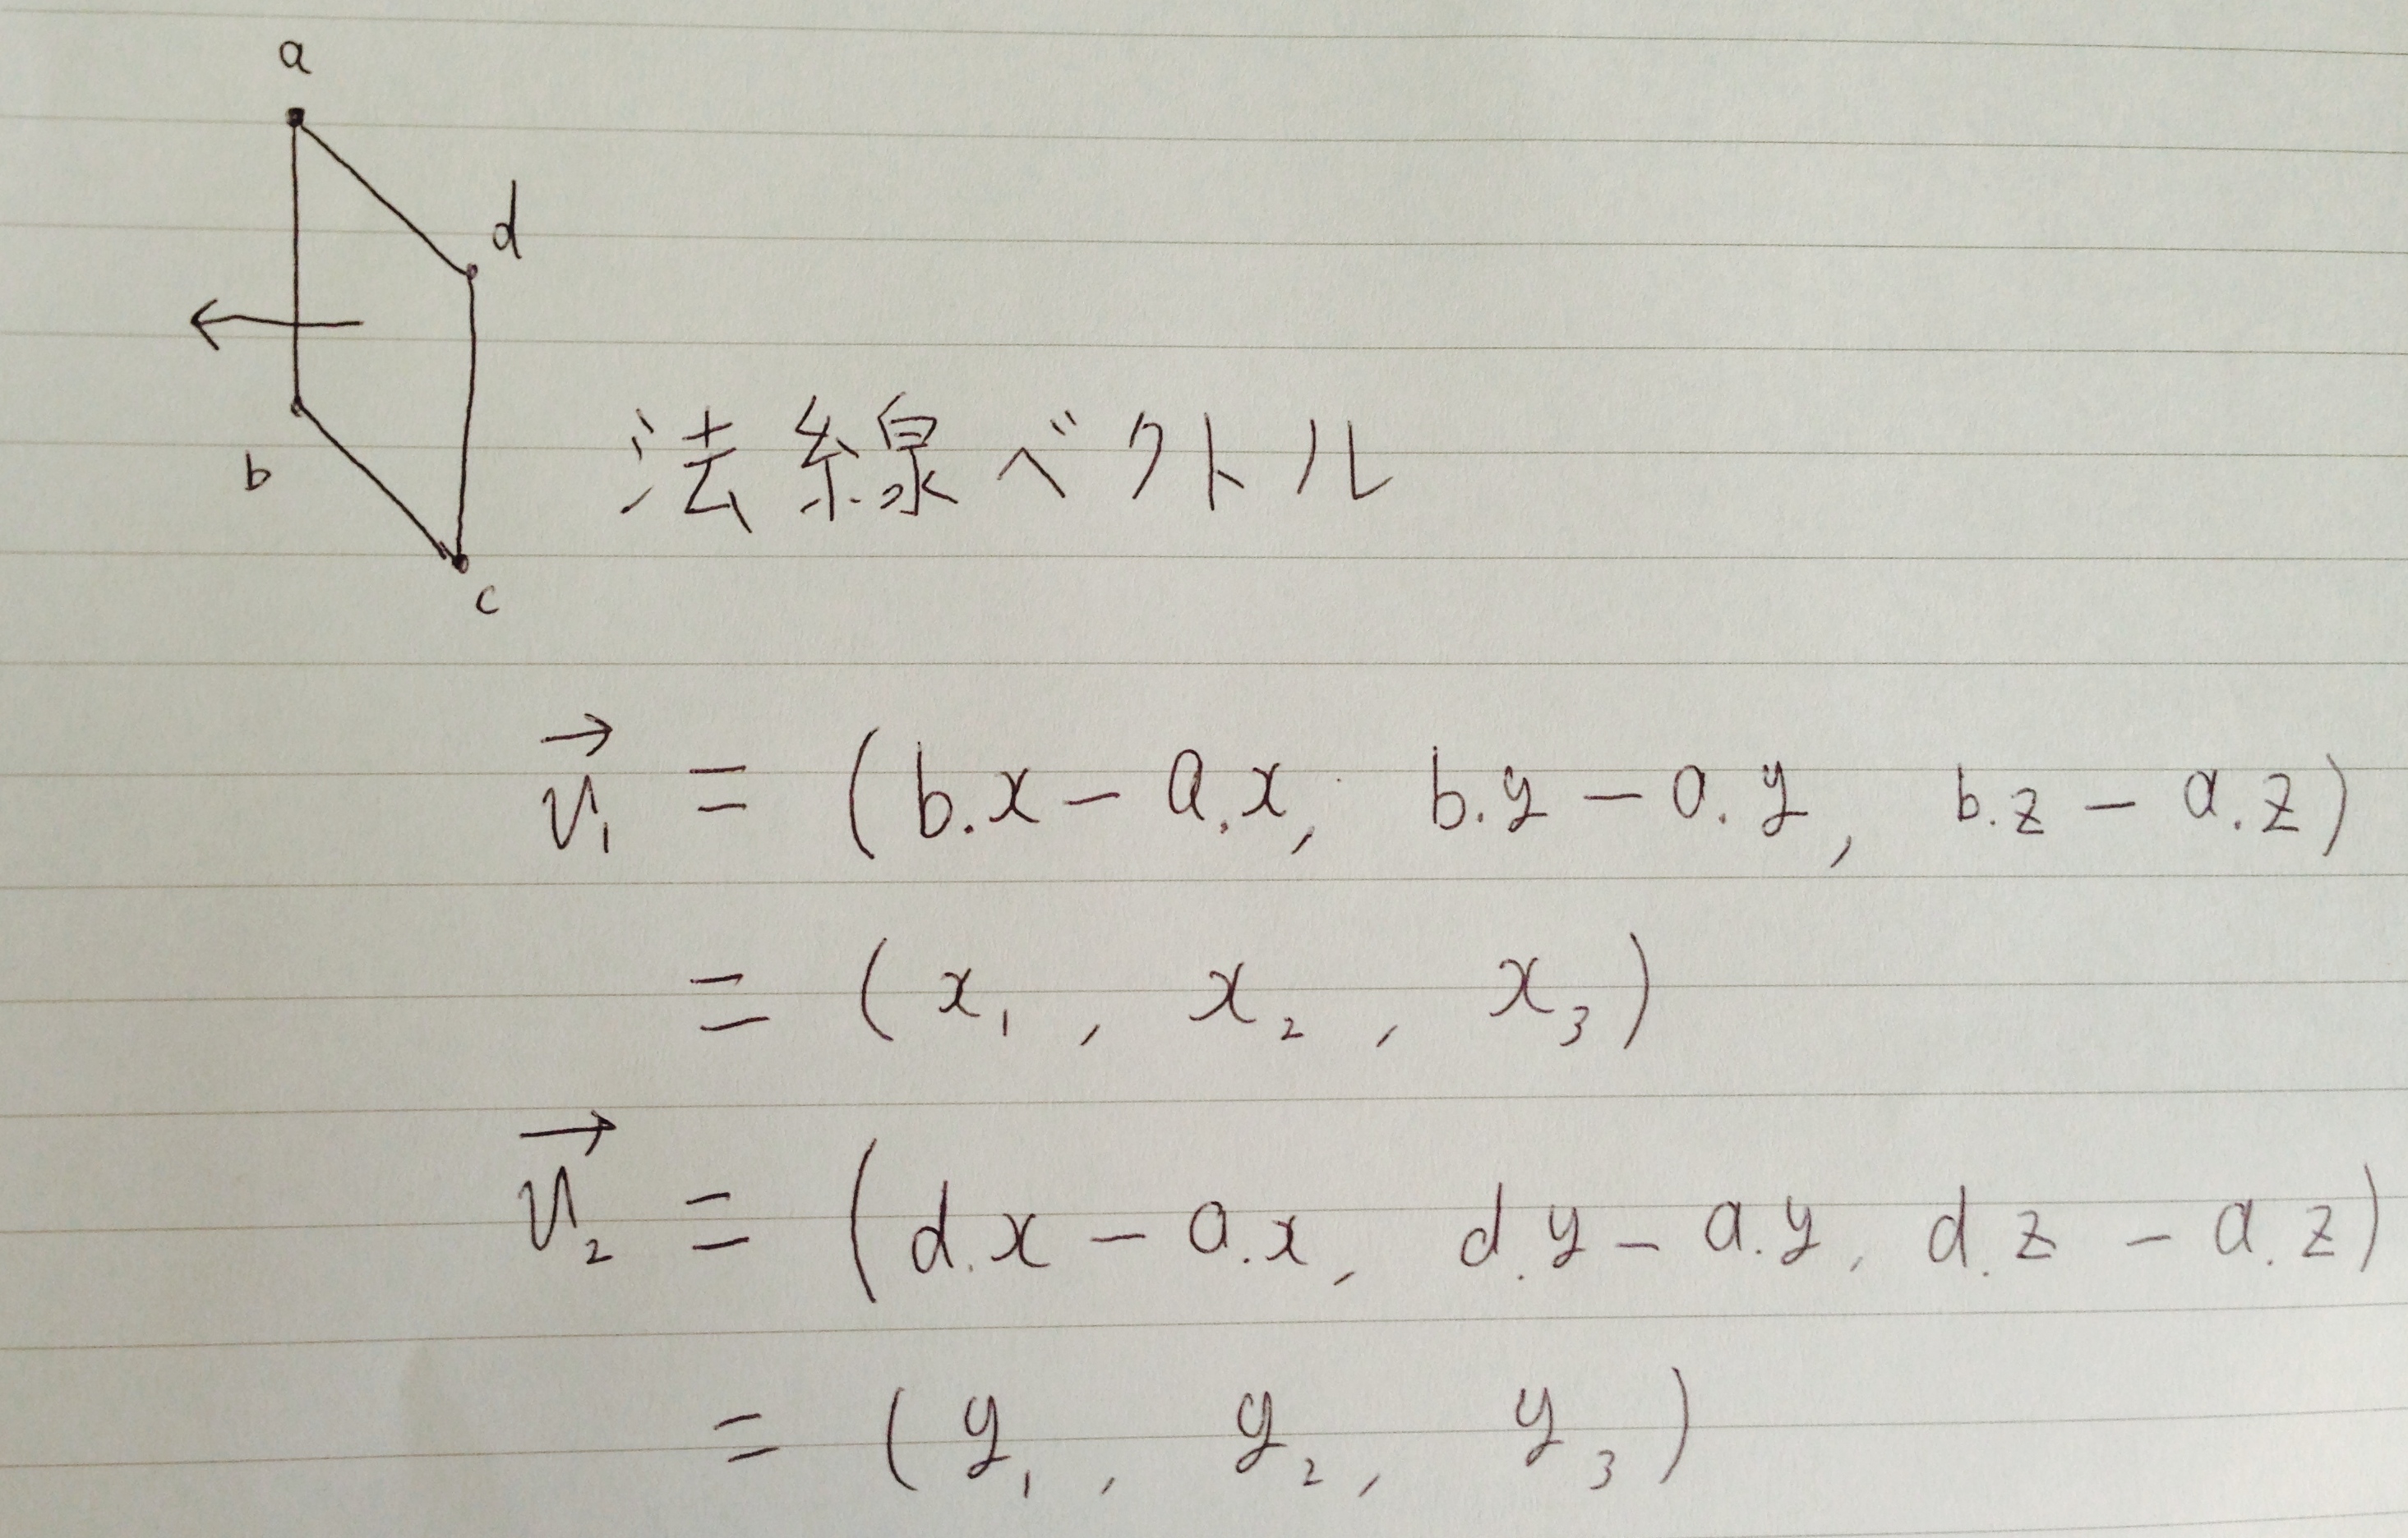 a
d
b
c
法線ベクトル
v₁ = (b.x - a.x, b.y - a.y, b.z - a.z)
= (x₁, x₂, x₃)
v₂ = (d.x - a.x, d.y - a.y, d.z - a.z)
= (y₁, y₂, y₃)